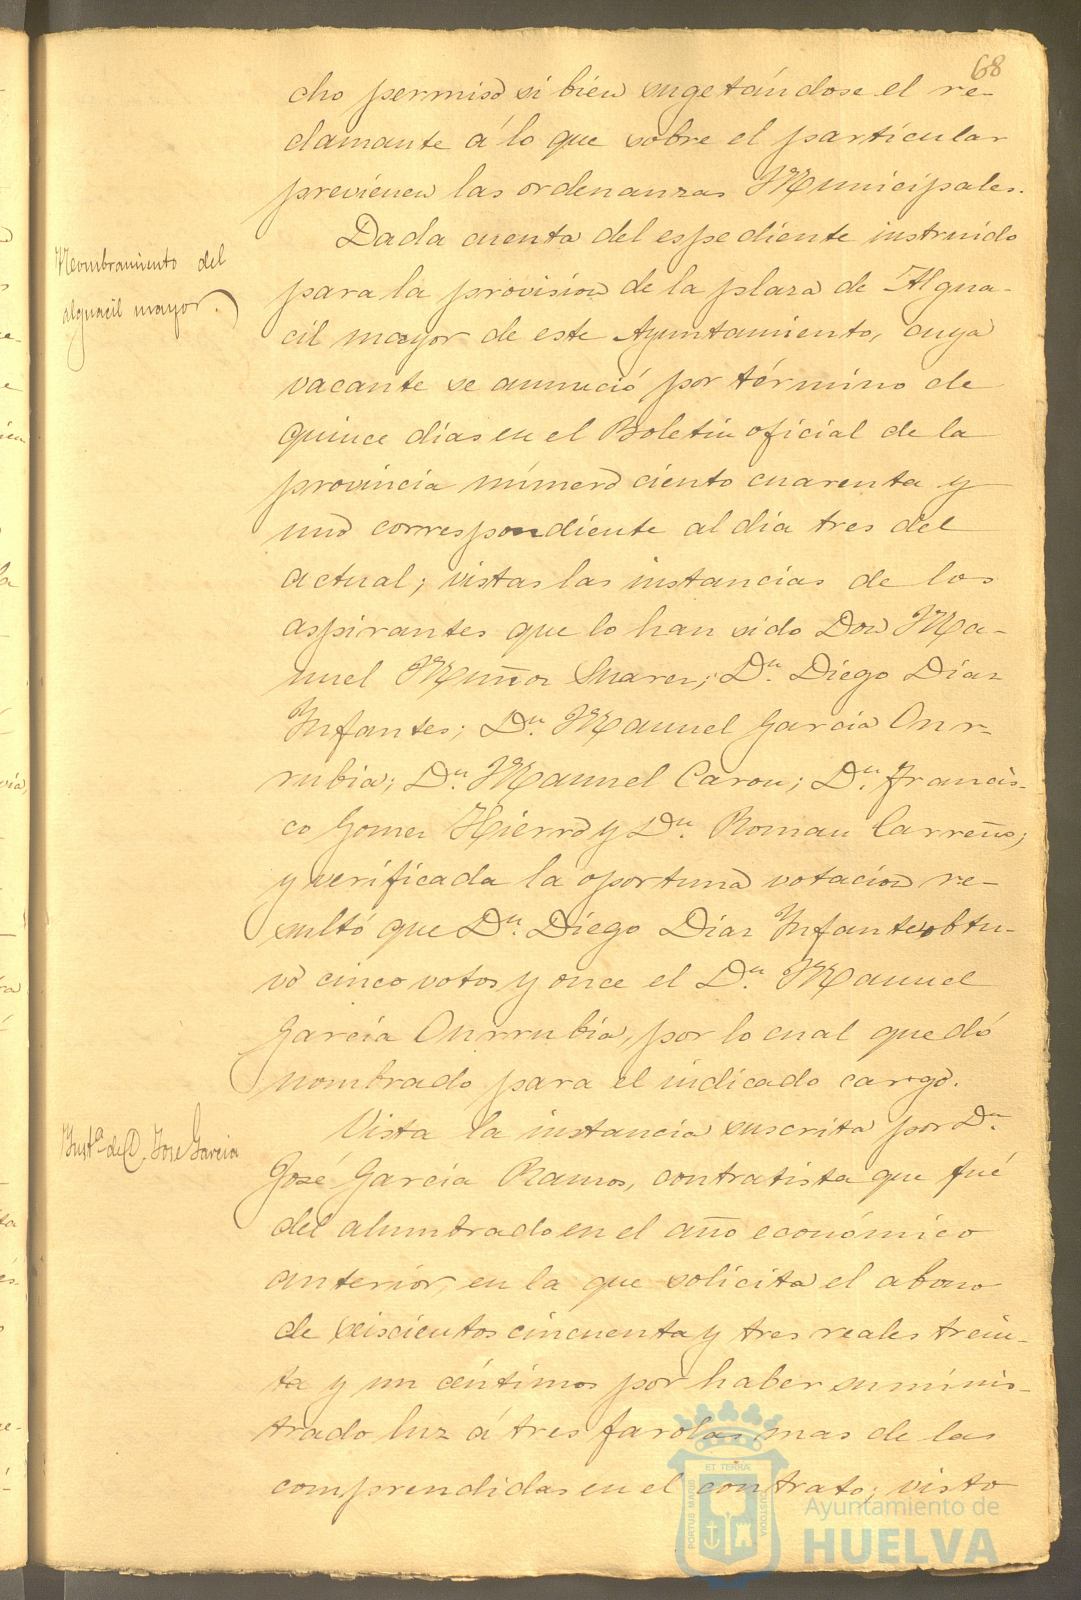 68
cho permiso si bien sugetándose el re-
clamante á lo que sobre el particular
previenen las ordenanzas Municipales.
Nombramiento del
alguacil mayor.
Dada cuenta del espediente instruido
para la provision de la plaza de Algua-
cil mayor de este Ayuntamiento, cuya
vacante se anunció por término de
quince dias en el Boletin oficial de la
provincia número ciento cuarenta y
uno correspondiente al dia tres del
actual; vistas las instancias de los
aspirantes que lo han sido Don Ma-
nuel Muñoz Suarez; Dn. Diego Diaz
Infantes; Dn. Manuel Garcia Onr-
rubia; Dn. Manuel Caron; Dn. Francis-
co Gomez Hierro y Dn. Roman Carreño;
y verificada la oportuna votacion re-
sultó que Dn. Diego Diaz Infantes obtu-
vo cinco votos y once el Dn. Manuel
Garcia Onrrubia, por lo cual quedó
nombrado para el indicado cargo.
Insta. de D. Jose Garcia
Vista la instancia suscrita por Dn.
José Garcia Ramos, contratista que fué
del alumbrado en el año económico
anterior, en la que solicita el abono
de seiscientos cincuenta y tres reales trein-
ta y un céntimos por haber suminis-
trado luz á tres farolas mas de las
comprendidas en el contrato; visto
ET TERRA
PORTUS MARIS
CUSTODIA
Ayuntamiento de
HUELVA